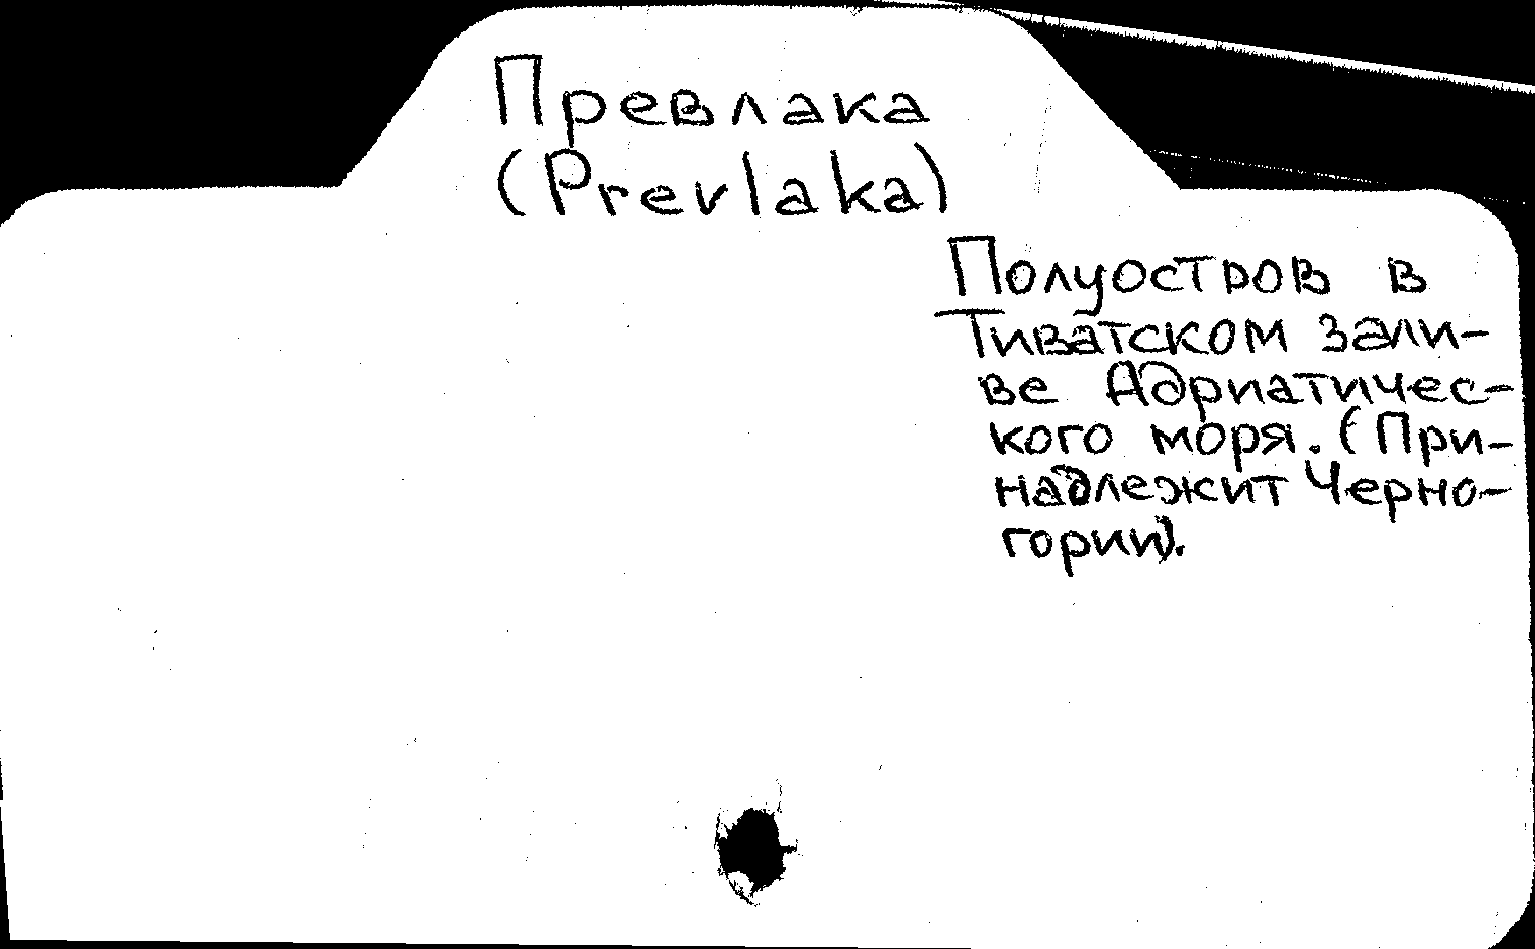 Превлака
(Prevlaka)
Полуостров в
Тиватском зали-
ве Адриатичес-
кого моря. (При-
надлежит Черно-
гории).